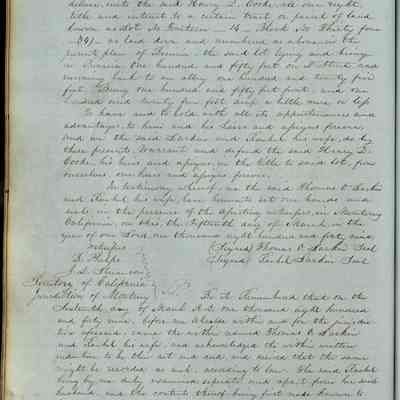 deliver, unto the said Henry D. Cooke, all our right,
title and interest to a certain tract or parcel of land
known as Lot No Fourteen - 14 - Block No Thirty four
- 34 - as laid down and numbered as above in the
present plan of Benicia. the said lot lying and being
in Benicia One hundred and fifty feet on I Street and
running back to an alley one hundred and twenty five
feet. Being one hundred and fifty feet front, and one
hundred and twenty five feet deep a little more or less
To have and to hold with all its appurtenances and
advantages, to him and his heirs and assigns forever.
And we the said Larkin and Rachel his wife, do by
these presents, warrant and defend the said Henry D.
Cooke his heirs and assigns, in the title to said lot, for
ourselves our heirs and assigns forever.
In testimony whereof, we the said Thomas O. Larkin
and Rachel his wife, have hereunto set our hands and
seals, in the presence of the attesting witnesses, in Monterey
California, on this, the Fifteenth day of March in the
year of our Lord, one thousand eight hundred and forty nine,
witnesses (Signed) Thomas O. Larkin Seal
(Signed) Rachel Larkin Seal
Territory of California
Jurisdiction of Monterey Be it Remembered that on the
Sixteenth day of March A.D. one thousand eight hundred
and forty nine, before me Alcalde within and for the jurisdic-
tion aforesaid, came the within named Thomas O. Larkin
and Rachel his wife, and acknowledged the within written
indenture to be their act and deed, and desired that the same
might be recorded as such, according to law. The said Rachel
being by me duly examined separate and apart from her said
husband, and the contents thereof being first made known to